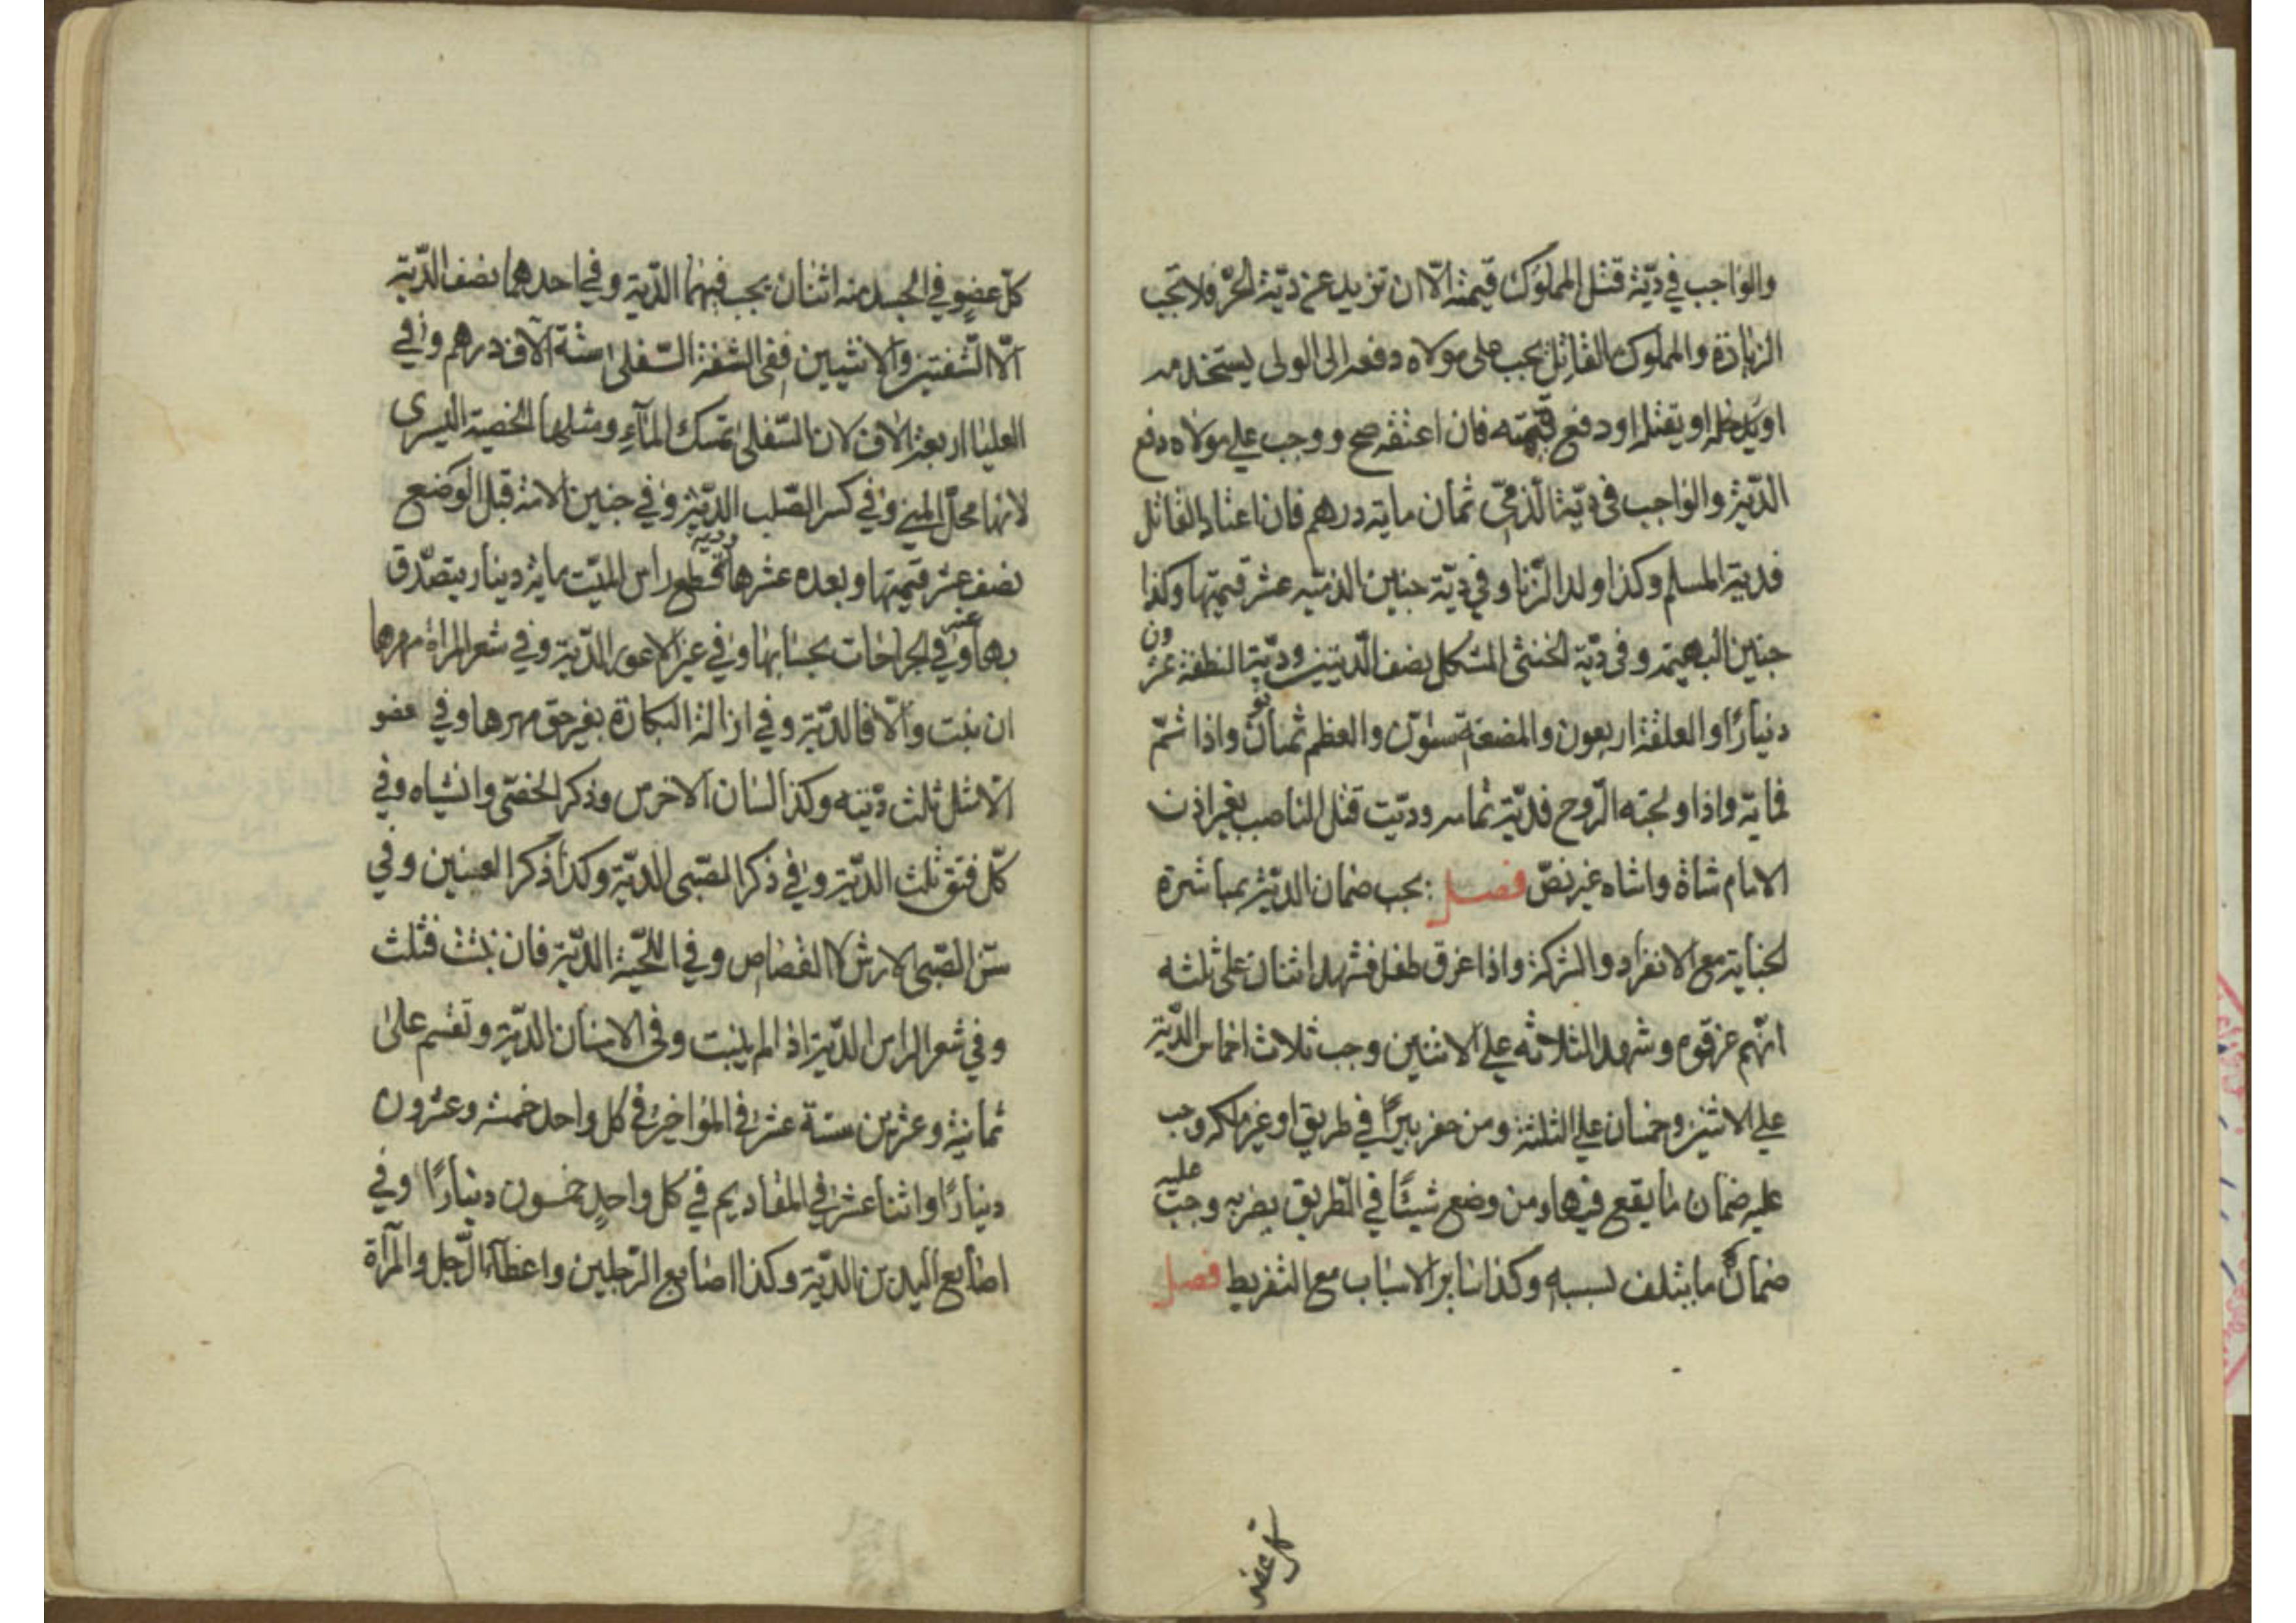 والواجب في ديّة قتل المملوك قيمته الّا ان تزيد عن ديّة الحرّ فلا تجب
الزيادة والمملوك القاتل يجب على مولاه دفعه الى الولى يستخدمه
او يقتله او دفع قيمته فان اعتقه صح ووجب على مولاه دفع
الديّة والواجب فى ديّة الذمّى ثمان ماية درهم فان اعتاد القاتل
فدية المسلم وكذا ولد الزّنا وفي ديّة جنين الذميّه عشر قيمتها وكذا
جنين البهيمة وفى ديّة الخنثى المشكل نصف الديتين وديّة النطفة عشرون
دينارًا والعلقة اربعون والمضغة ستون والعظم ثمانون واذا تمّ
فماية واذا ولجته الرّوح فديّة تمامه وديّت قتل الناصب بغير اذن
الامام شاة واشاه غير نصّ فصل يجب ضمان الديّة بمباشرة
الجناية مع الانفراد والشركة واذا غرق طفل فشهد اثنان على ثلثه
انّهم غرقوه وشهد الثلاثه على الاثنين وجب ثلاث اخماس الديّة
على الاثنين وخمسان على الثلثة ومن حفر بيرًا في طريق او غير ملكه وجب
عليه ضمان ما يقع فيها ومن وضع شيئًا في الطريق يضر به وجب عليه
ضمان ما يتلف بسببه وكذا ساير الاسباب مع التفريط فصل
كل عضو
كلّ عضوٍ في الجسد منه اثنان يجب فيهما الديّة وفي احدهما نصف الديّة
الّا الشفتين والانثيين ففى الشفة السّفلى ستّة آلاف درهم وفي
العليا اربعة الاف لان السّفلى تمسك المآء ومثلها الخصية اليسرى
لانها محلّ المنى وفي كسر الصّلب الديّة وفي جنين الامة قبل الوضع
نصف عشر قيمتها وبعده عشرها ودية قطع راس الميّت ماية دينار يتصدّق
بها وفي الجراحات بحسابها وفي عين الاعور الديّة وفي شعر المراة مهرها
ان نبت والّا فالديّة وفي ازالة البكارة بغير حق مهرها وفي عضو
الاشل ثلث ديّته وكذا لسان الاخرس وذكر الخصّى وانثياه وفي
كلّ فتق ثلث الديّة وفي ذكر الصّبى الديّة وكذا ذكر العنين وفي
سنّ الصّبى الارش لا القصاص وفي اللّحية الديّة فان نبتت فثلث
وفي شعر الراس الديّة اذا لم ينبت وفى الاسنان الديّة وتقسم على
ثمانية وعشرين ستة عشر في المواخير في كل واحد خمسة وعشرون
دينارًا واثنا عشر في المقاديم في كل واحدٍ خمسون دينارًا وفي
اصابع اليدين الديّة وكذا اصابع الرّجلين واعضآء الرّجل والمرآة